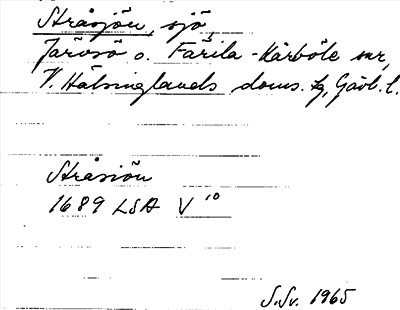 Stråsjön, sjö,
Järvsö o. Färila-Kårböle snr,
V. Hälsinglands doms. tg, Gävl. l.
Stråsiön
1689 LSA V 10
S.Sv. 1965